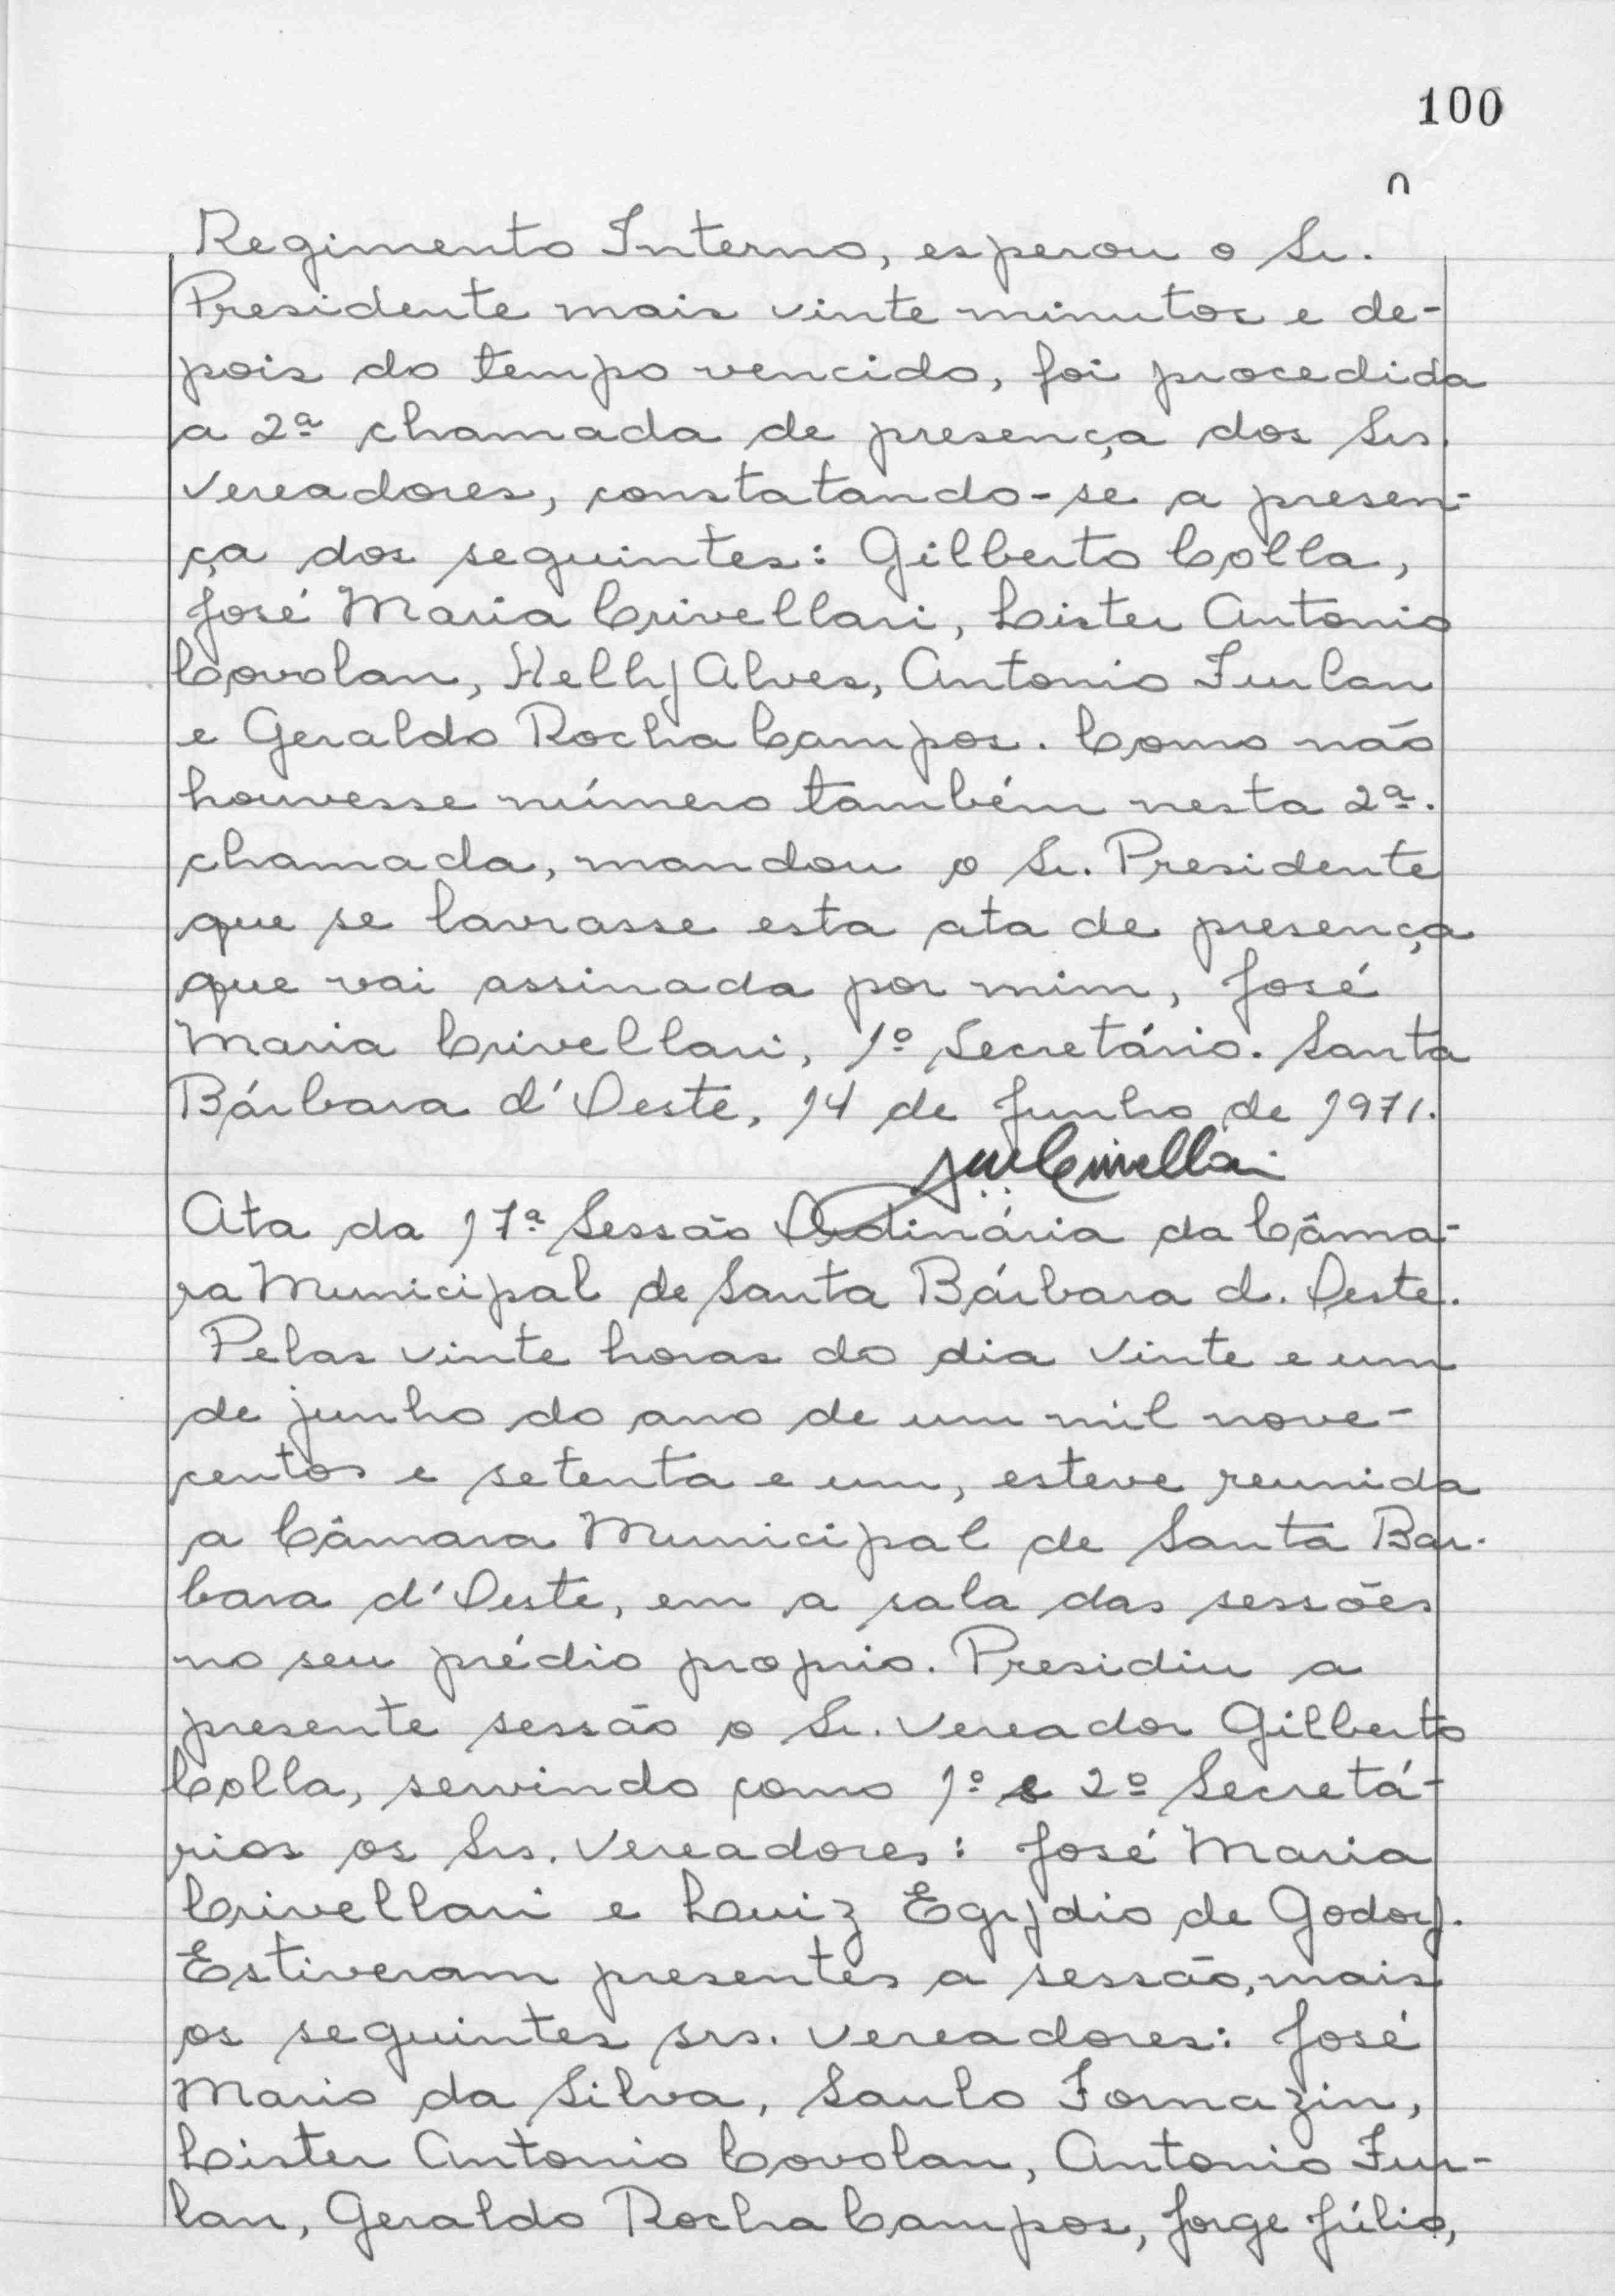 100
Regimento Interno, esperou o Sr.
Presidente mais vinte minutos e de-
pois do tempo vencido, foi procedida
a 2ª chamada de presença dos Srs.
Vereadores, constatando-se a presen-
ça dos seguintes: Gilberto Colla,
José Maria Crivellari, Lister Antonio
Covolan, Helly Alves, Antonio Furlan
e Geraldo Rocha Campos. Como não
houvesse número também nesta 2ª.
chamada, mandou o Sr. Presidente
que se lavrasse esta ata de presença
que vai assinada por mim, José
Maria Crivellari, 1º Secretário. Santa
Bárbara d'Oeste, 14 de Junho de 1971.
Ata da 17ª Sessão Ordinária da Câma-
ra Municipal de Santa Bárbara d. Oeste.
Pelas vinte horas do dia vinte e um
de junho do ano de um mil nove-
centos e setenta e um, esteve reunida
a Câmara Municipal de Santa Bar-
bara d'Oeste, em a sala das sessões
no seu prédio proprio. Presidiu a
presente sessão o Sr. Vereador Gilberto
Colla, servindo como 1º e 2º Secretá-
rios os Srs. Vereadores: José Maria
Crivellari e Luiz Egydio de Godoy.
Estiveram presentes a sessão, mais
os seguintes srs. vereadores: José
Mario da Silva, Saulo Fornazin,
Lister Antonio Covolan, Antonio Fur-
lan, Geraldo Rocha Campos, Jorge Júlio,